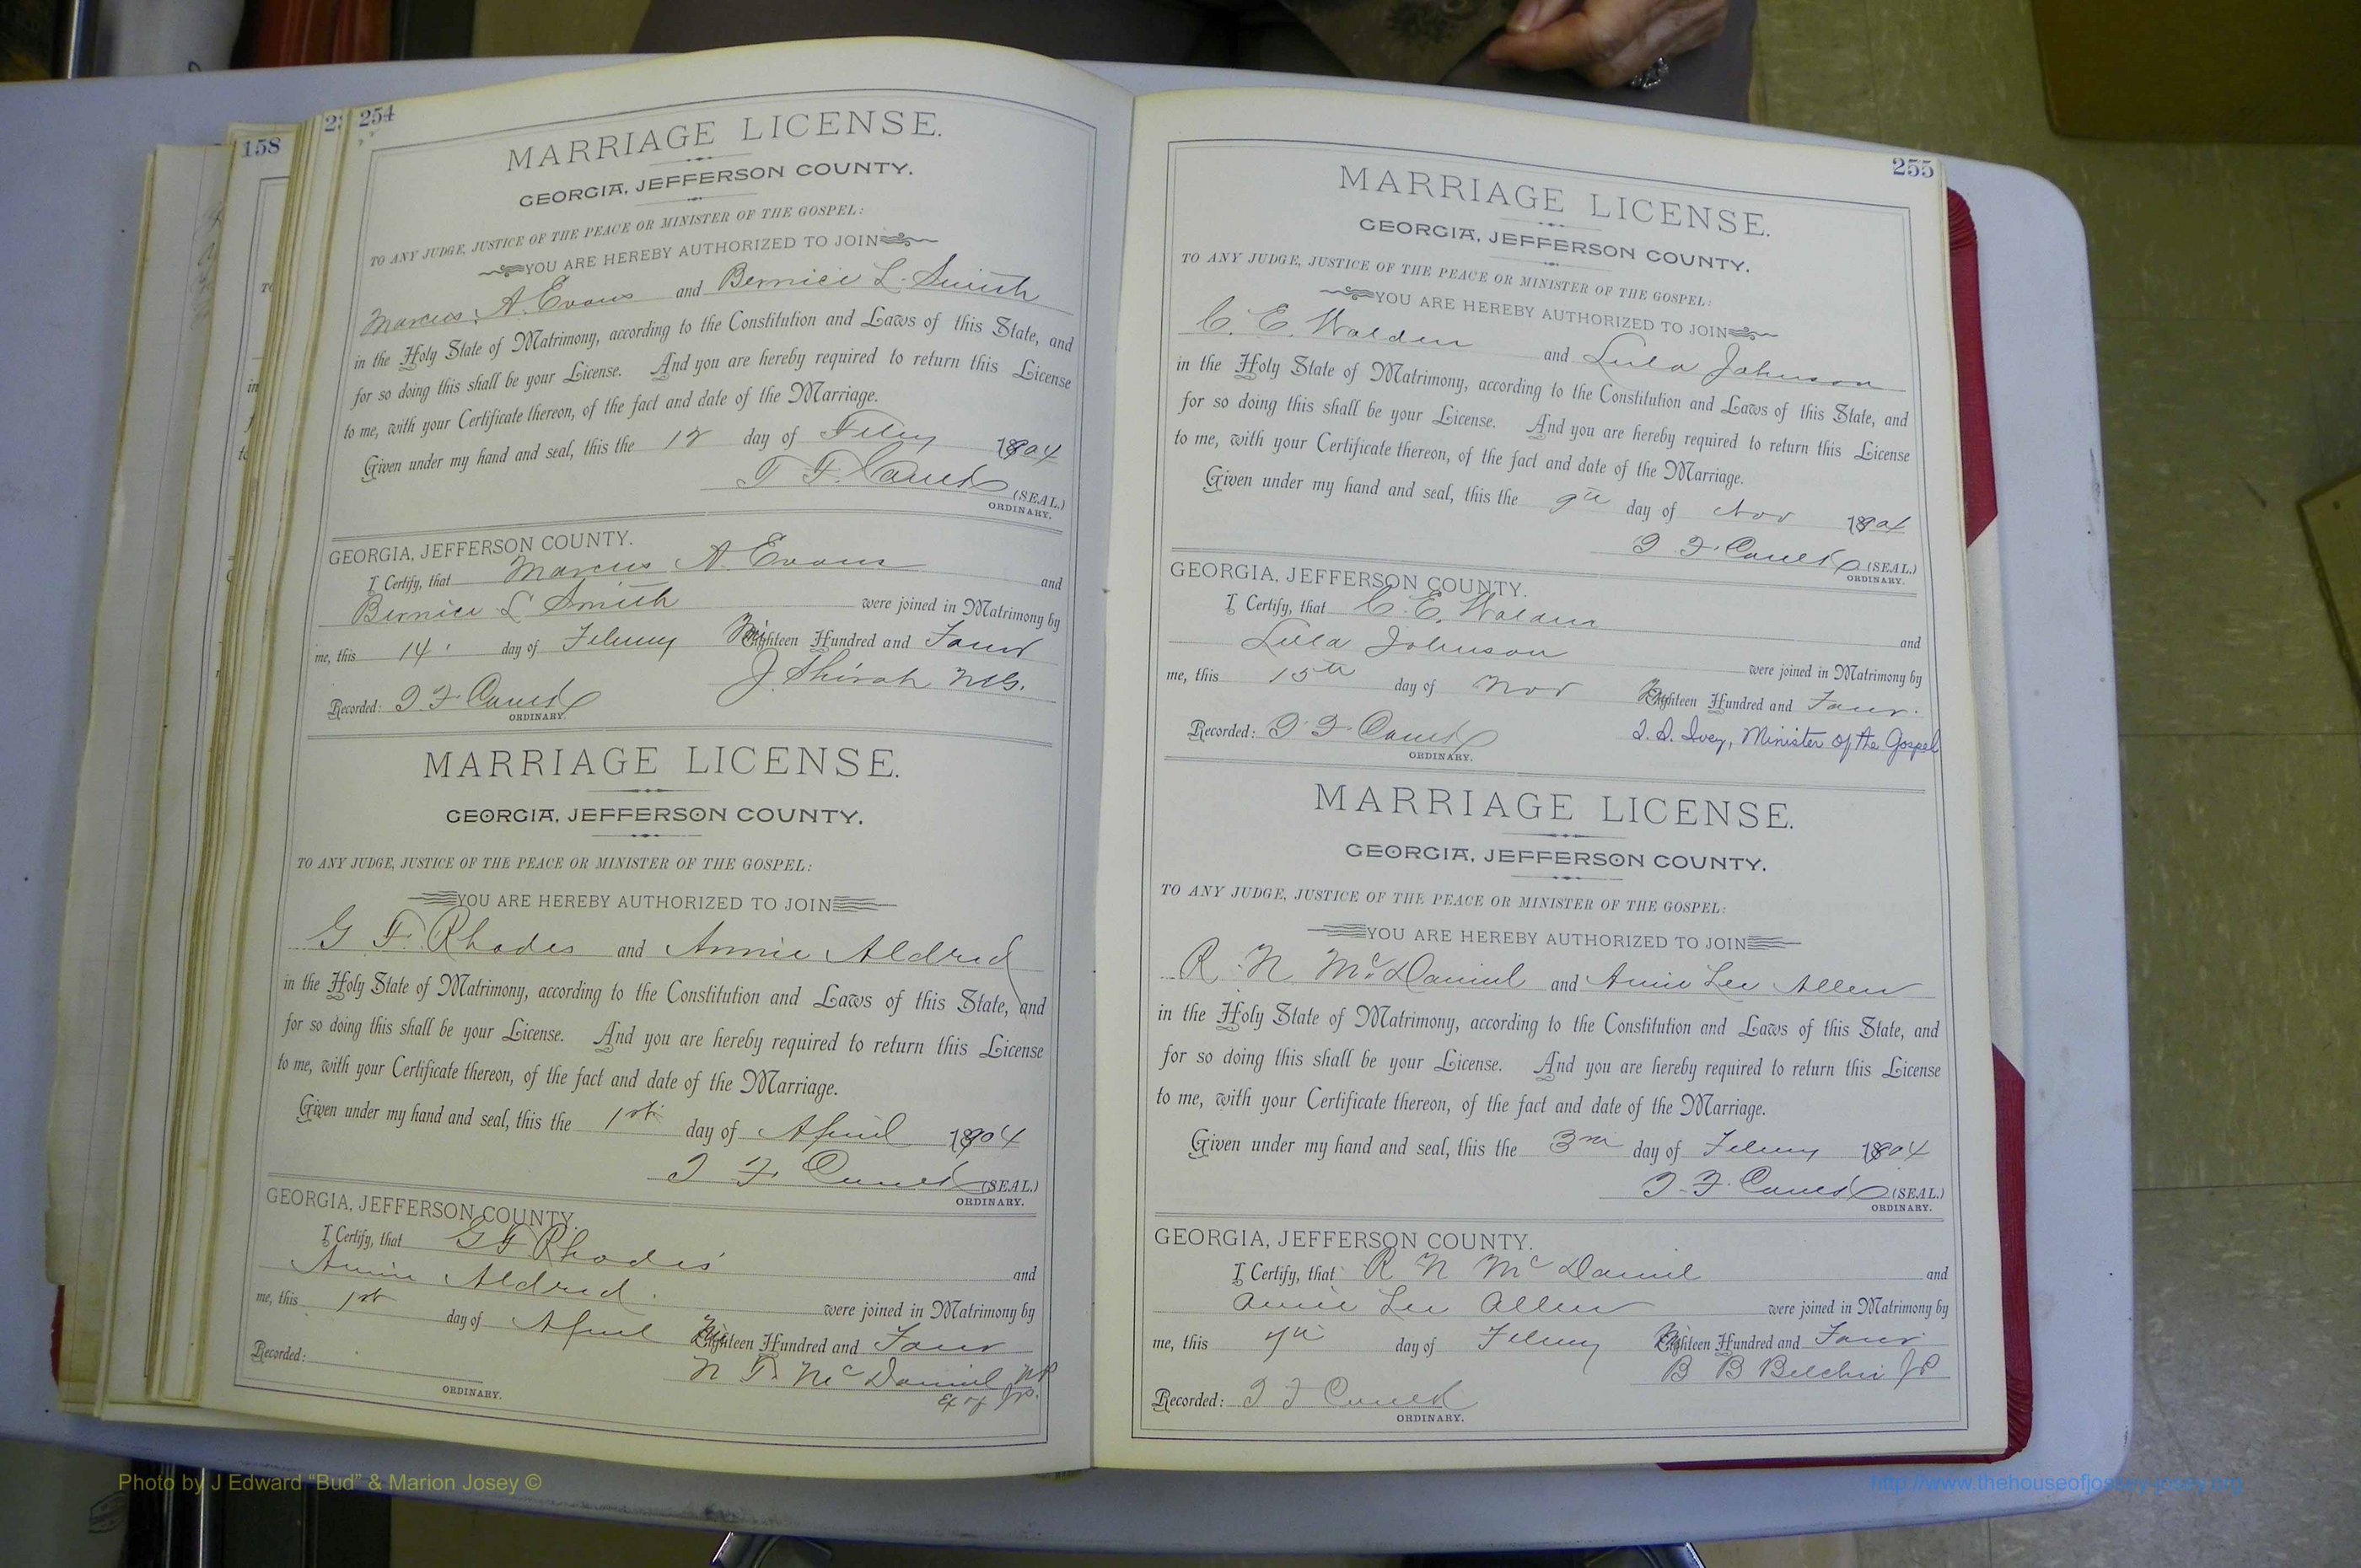 158
2
254
MARRIAGE LICENSE.
GEORGIA, JEFFERSON COUNTY.
TO ANY JUDGE, JUSTICE OF THE PEACE OR MINISTER OF THE GOSPEL:
YOU ARE HEREBY AUTHORIZED TO JOIN
Marcus A. Evans and Bernice L. Smith
in the Holy State of Matrimony, according to the Constitution and Laws of this State, and
for so doing this shall be your License. And you are hereby required to return this License
to me, with your Certificate thereon, of the fact and date of the Marriage.
Given under my hand and seal, this the 12 day of Feby 1904
(SEAL.)
ORDINARY.
GEORGIA, JEFFERSON COUNTY.
I Certify, that Marcus A. Evans and
Bernice L Smith were joined in Matrimony by
me, this 14 day of Hundred and Four
J. Shirah M.G.
Recorded:
ORDINARY.
MARRIAGE LICENSE.
GEORGIA, JEFFERSON COUNTY.
TO ANY JUDGE, JUSTICE OF THE PEACE OR MINISTER OF THE GOSPEL:
YOU ARE HEREBY AUTHORIZED TO JOIN
G F. Rhodes and Annie Aldred
in the Holy State of Matrimony, according to the Constitution and Laws of this State, and
for so doing this shall be your License. And you are hereby required to return this License
to me, with your Certificate thereon, of the fact and date of the Marriage.
Given under my hand and seal, this the 1st day of April 1904
(SEAL.)
ORDINARY.
GEORGIA, JEFFERSON COUNTY.
I Certify, that G F Rhodes and
Annie Aldred. were joined in Matrimony by
me, this 1st day of April Hundred and Four
Recorded: N. T. McDaniel NP
ORDINARY. Ex of J.P.
255
MARRIAGE LICENSE.
GEORGIA, JEFFERSON COUNTY.
TO ANY JUDGE, JUSTICE OF THE PEACE OR MINISTER OF THE GOSPEL:
YOU ARE HEREBY AUTHORIZED TO JOIN
C. E. Walden and Lula Johnson
in the Holy State of Matrimony, according to the Constitution and Laws of this State, and
for so doing this shall be your License. And you are hereby required to return this License
to me, with your Certificate thereon, of the fact and date of the Marriage.
Given under my hand and seal, this the 9th day of Nov 1904
(SEAL.)
ORDINARY.
GEORGIA, JEFFERSON COUNTY.
I Certify, that C. E. Walden and
Lula Johnson were joined in Matrimony by
me, this 15th day of Nov Hundred and Four.
Recorded: Ivey, Minister of the Gospel
ORDINARY.
MARRIAGE LICENSE.
GEORGIA, JEFFERSON COUNTY.
TO ANY JUDGE, JUSTICE OF THE PEACE OR MINISTER OF THE GOSPEL:
YOU ARE HEREBY AUTHORIZED TO JOIN
R. N McDaniel and Annie Lee Allen
in the Holy State of Matrimony, according to the Constitution and Laws of this State, and
for so doing this shall be your License. And you are hereby required to return this License
to me, with your Certificate thereon, of the fact and date of the Marriage.
Given under my hand and seal, this the day of 1904
(SEAL.)
ORDINARY.
GEORGIA, JEFFERSON COUNTY.
I Certify, that R N McDaniel and
Annie Lee Allen were joined in Matrimony by
me, this day of Hundred and Four
B B Belcher JP
Recorded:
ORDINARY.
Photo by J Edward “Bud” & Marion Josey ©